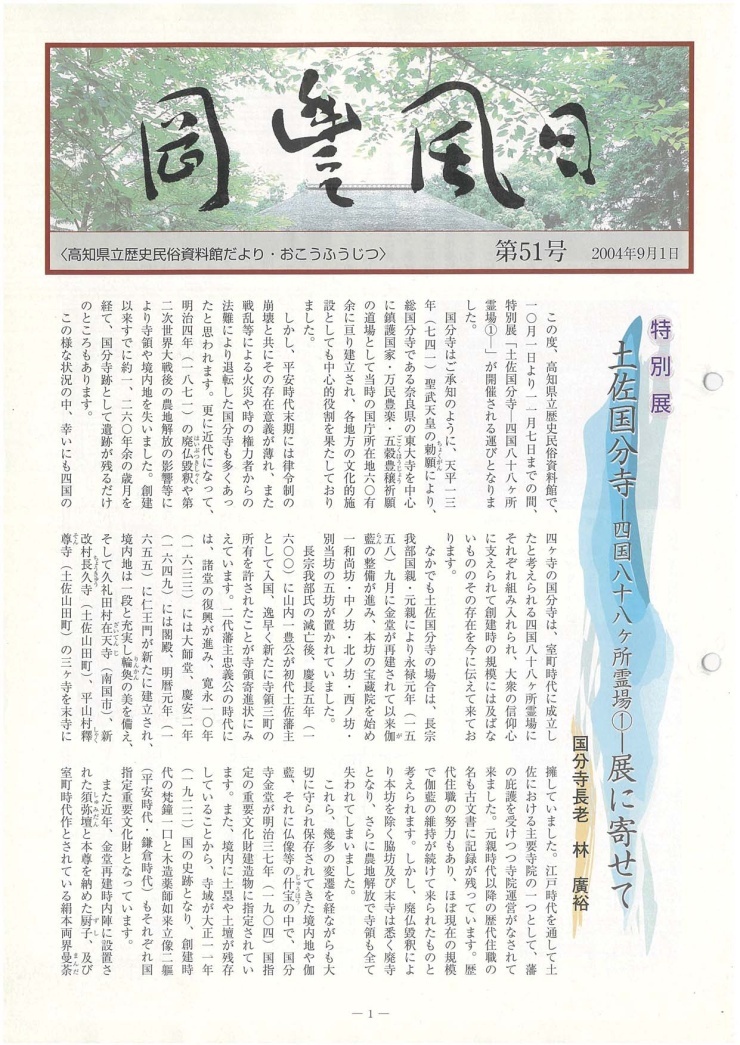 岡豊風日
〈高知県立歴史民俗資料館だより・おこうふうじつ〉 第51号 2004年9月1日
特別展
土佐国分寺―四国八十八ヶ所霊場①―展に寄せて
国分寺長老 林 廣裕
この度、高知県立歴史民俗資料館で、
一〇月一日より一一月七日までの間、
特別展「土佐国分寺―四国八十八ヶ所
霊場①―」が開催される運びとなりま
した。
国分寺はご承知のように、天平一三
年（七四一）聖武天皇の勅願により、
総国分寺である奈良県の東大寺を中心
に鎮護国家・万民豊楽・五穀豊穣祈願
の道場として当時の国庁所在地六〇有
余に亘り建立され、各地方の文化的施
設としても中心的役割を果たしており
ました。
しかし、平安時代末期には律令制の
崩壊と共にその存在意義が薄れ、また
戦乱等による火災や時の権力者からの
法難により退転した国分寺も多くあっ
たと思われます。更に近代になって、
明治四年（一八七一）の廃仏毀釈や第
二次世界大戦後の農地解放の影響等に
より寺領や境内地を失いました。創建
以来すでに約一、二六〇年余の歳月を
経て、国分寺跡として遺跡が残るだけ
のところもあります。
この様な状況の中、幸いにも四国の
四ヶ寺の国分寺は、室町時代に成立し
たと考えられる四国八十八ヶ所霊場に
それぞれ組み入れられ、大衆の信仰心
に支えられて創建時の規模には及ばな
いもののその存在を今に伝えて来てお
ります。
なかでも土佐国分寺の場合は、長宗
我部国親・元親により永禄元年（一五
五八）九月に金堂が再建されて以来伽
藍の整備が進み、本坊の宝蔵院を始め
一和尚坊・中ノ坊・北ノ坊・西ノ坊・
別当坊の五坊が置かれていました。
長宗我部氏の滅亡後、慶長五年（一
六〇〇）に山内一豊公が初代土佐藩主
として入国、逸早く新たに寺領三町の
所有を許されたことが寺領寄進状にみ
えています。二代藩主忠義公の時代に
は、諸堂の復興が進み、寛永一〇年
（一六三三）には大師堂、慶安二年
（一六四九）には閣殿、明暦元年（一
六五五）に仁王門が新たに建立され、
境内地は一段と充実し輪奐の美を備え、
そして久礼田村在天寺（南国市）、新
改村長久寺（土佐山田町）、平山村釋
尊寺（土佐山田町）の三ヶ寺を末寺に
擁していました。江戸時代を通して土
佐における主要寺院の一つとして、藩
の庇護を受けつつ寺院運営がなされて
来ました。元親時代以降の歴代住職の
名も古文書に記録が残っています。歴
代住職の努力もあり、ほぼ現在の規模
で伽藍の維持が続けて来られたものと
考えられます。しかし、廃仏毀釈によ
り本坊を除く脇坊及び末寺は悉く廃寺
となり、さらに農地解放で寺領も全て
失われてしまいました。
これら、幾多の変遷を経ながらも大
切に守られ保存されてきた境内地や伽
藍、それに仏像等の什宝の中で、国分
寺金堂が明治三七年（一九〇四）国指
定の重要文化財建造物に指定されてい
ます。また、境内に土塁や土壇が残存
していることから、寺域が大正一一年
（一九二二）国の史跡となり、創建時
代の梵鐘一口と木造薬師如来立像二軀
（平安時代・鎌倉時代）もそれぞれ国
指定重要文化財となっています。
また近年、金堂再建時内陣に設置さ
れた須弥壇と本尊を納めた厨子、及び
室町時代作とされている絹本両界曼荼
― 1 ―